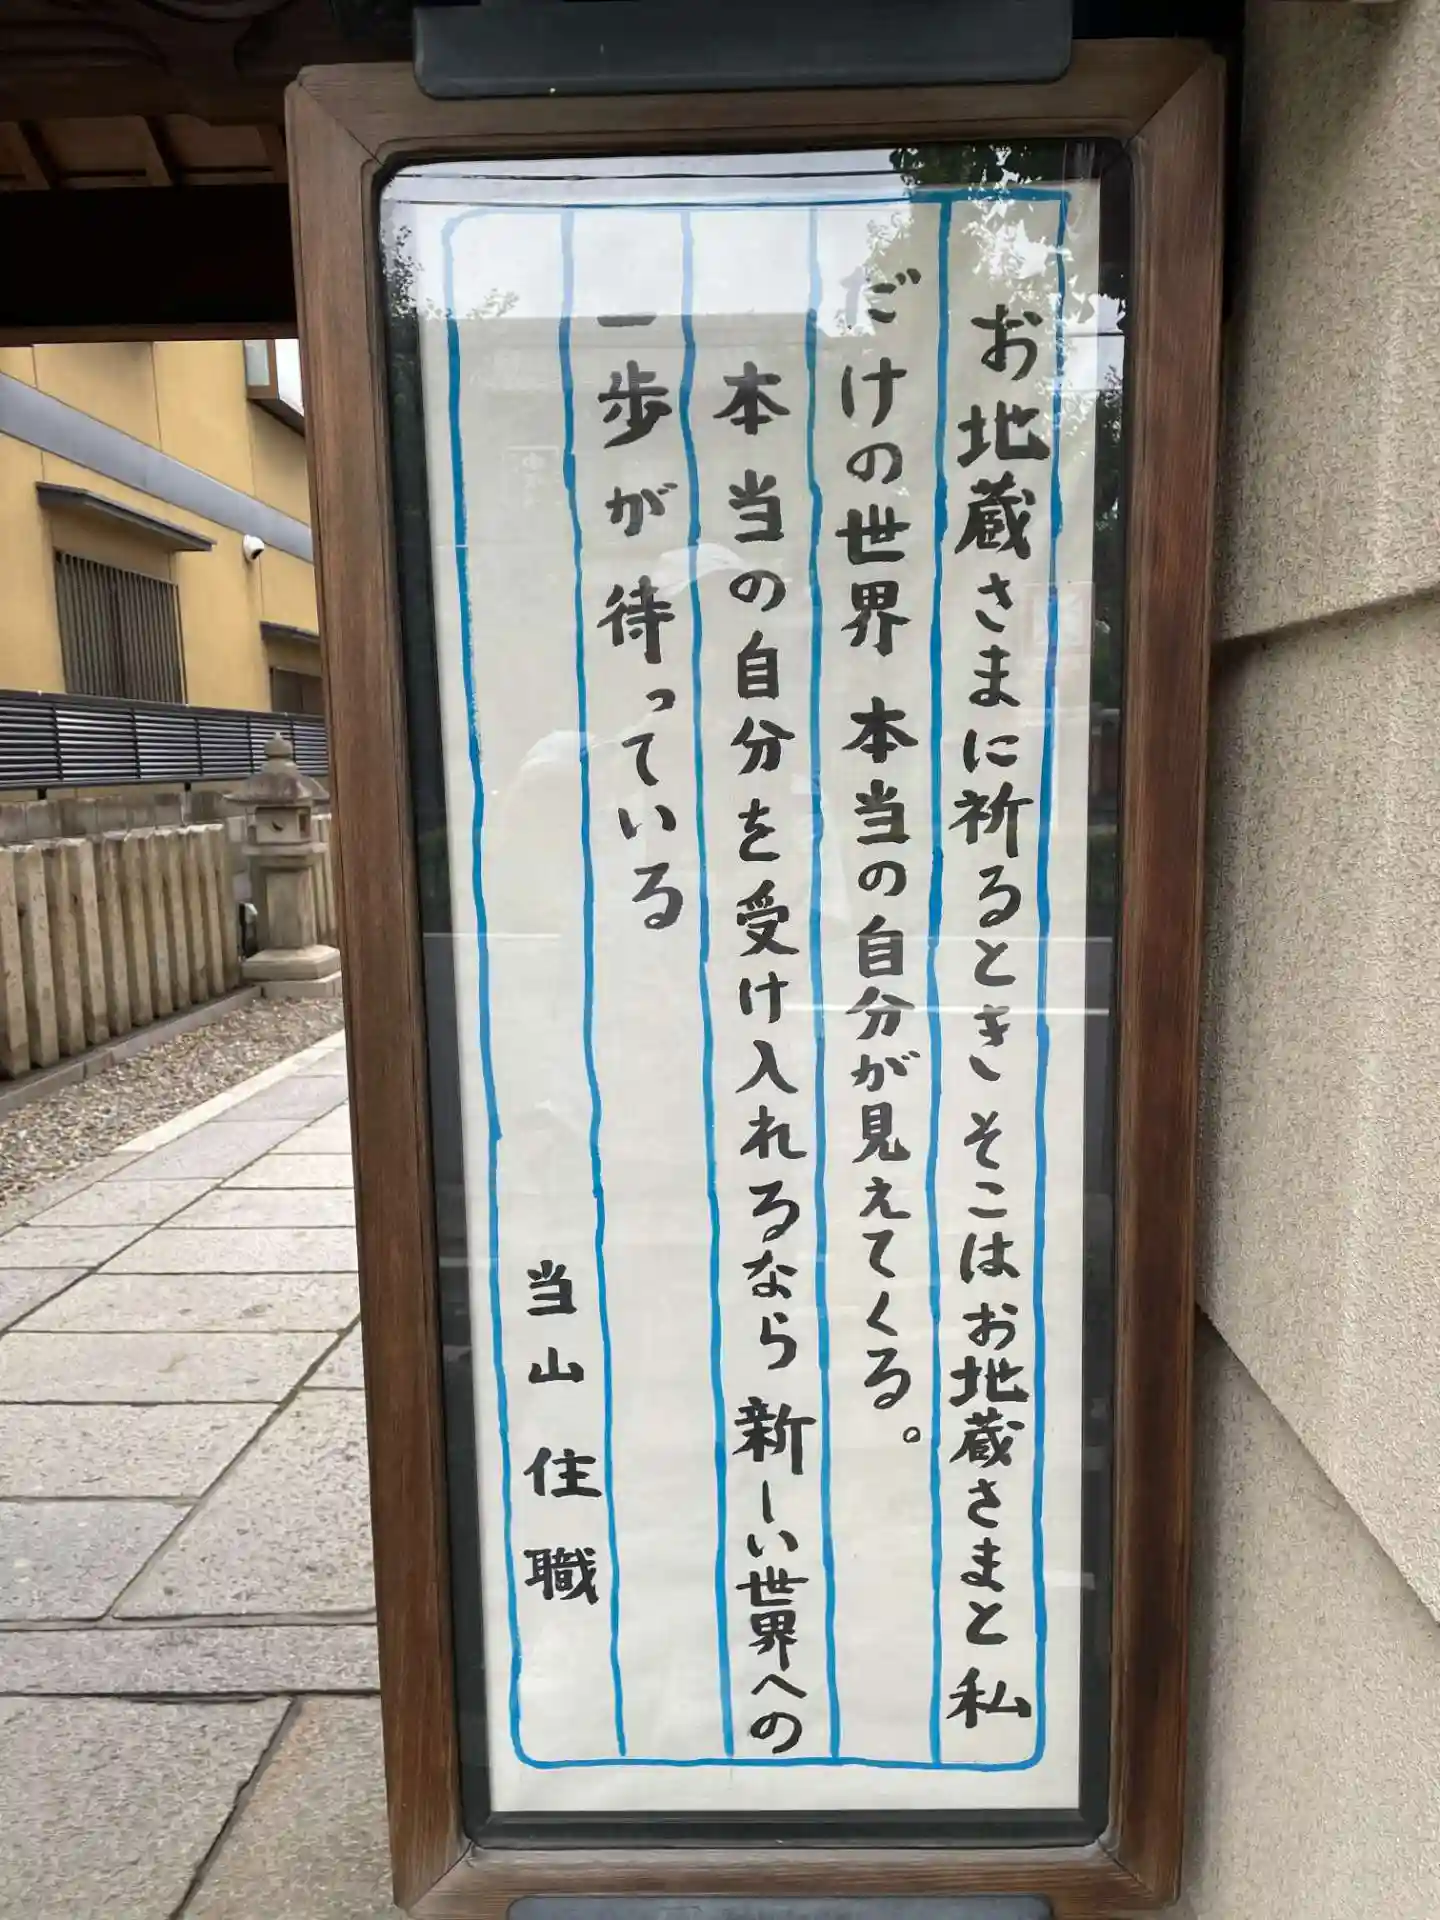 お地蔵さまに祈るとき そこはお地蔵さまと私
だけの世界 本当の自分が見えてくる。
本当の自分を受け入れるなら 新しい世界への
一歩が待っている
当山住職